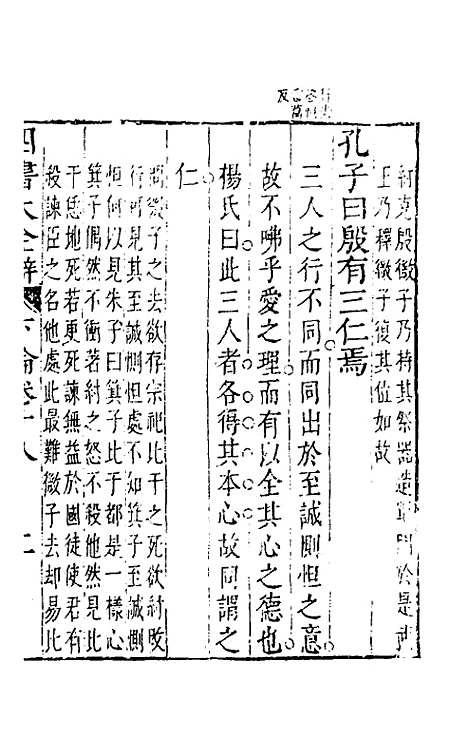 紂克殷微子乃持其祭器造軍門於是武
王乃釋微子復其位如故
孔子曰殷有三仁焉
三人之行不同而同出於至誠惻怛之意
故不咈乎愛之理而有以全其心之德也
楊氏曰此三人者各得其本心故同謂之
仁
問微子之去欲存宗祀比干之死欲紂改
行可見其至誠惻怛處不知箕子至誠惻
怛何以見朱子曰箕子比干都是一樣心
箕子偶然不衝著紂之怒不殺他然見比
干恁地死若更死諫無益於國徒使君有
殺諫臣之名他處此最難微子去却易比
四書大全辯 下論卷十八 二